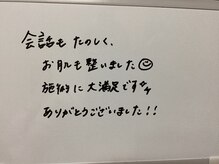 会話も たのしく、
お肌も整いました☺
施術に大満足です✨
ありがとうございました!!